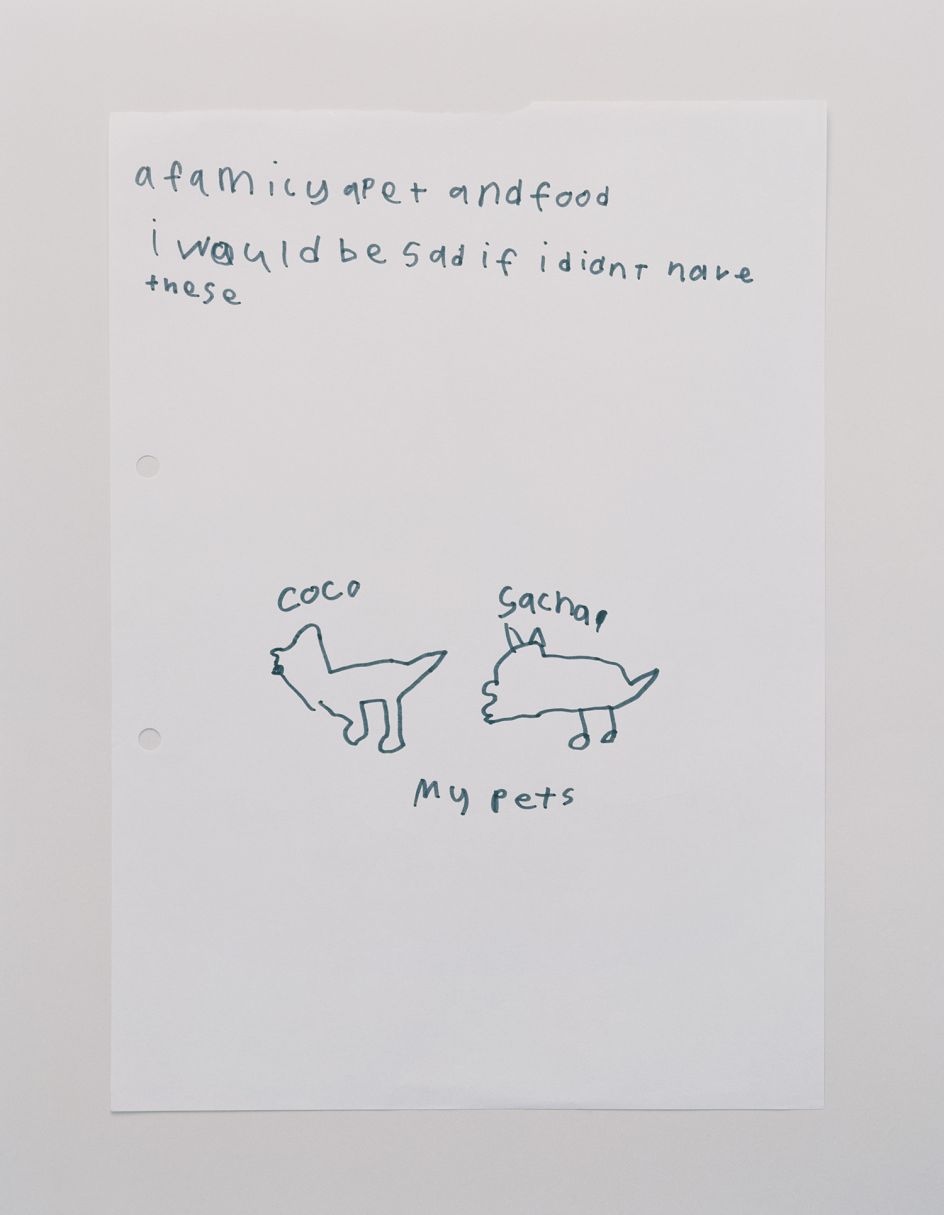 a family a Pet and food
i would be sad if i didnt have
these
coco
Sacha
My pets